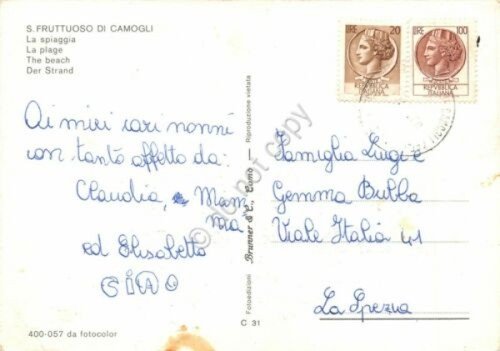 S. FRUTTUOSO DI CAMOGLI
La spiaggia
La plage
The beach
Der Strand
Ai miei cari nonni
con tanto affetto da:
Claudia, Mam
ma
ed Elisabetta
GINO
400-057 da fotocolor
Fotoedizioni Brunner & C., Como Riproduzione vietata
C 31
LIRE 20
REPVBBLICA
ITALIANA
LIRE 100
REPVBBLICA
ITALIANA
Famiglia Luigi e
Gemma Bubba
Viale Italia 41
La Spezia
do not copy